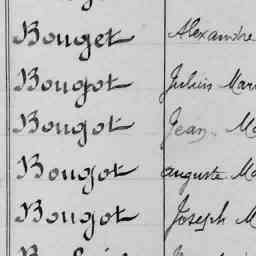 Bouget Alexandre
Bougot Julius Mar
Bougot Jean Ma
Bougot auguste Ma
Bougot Joseph M